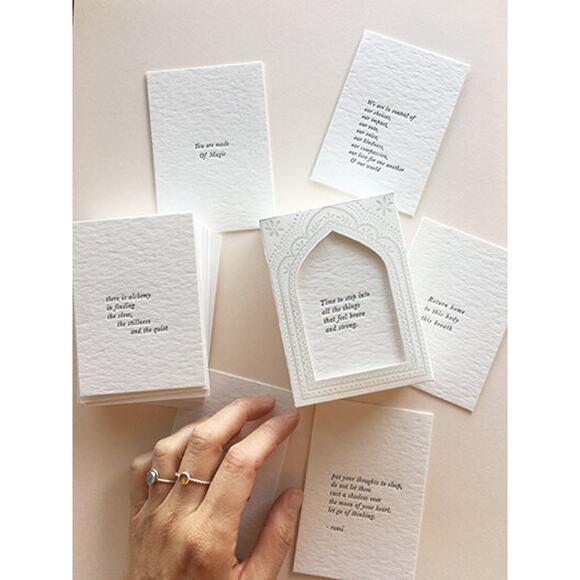 You are made
Of Magic
We are in control of
our choices,
our impact,
our vote,
our voice,
our kindness,
our compassion,
our love for one another
& our world
there is alchemy
in finding
the slow,
the stillness
and the quiet
Time to step into
all the things
that feel brave
and strong.
Return home
to this body
this breath
put your thoughts to sleep,
do not let them
cast a shadow over
the moon of your heart,
let go of thinking.
- rumi